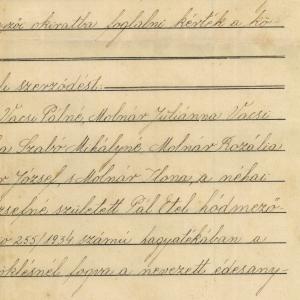 okiratba foglalni kérték a kö-
szerződést:
Vácsi Pálné, Molnár Juliánna Vácsi
Szabó Mihályné, Molnár Rozália
József, s Molnár Ilona, a néhai
született Pál Etel hódmező-
255/1934 számú hagyatékában a
fogva a nevezett édesany-